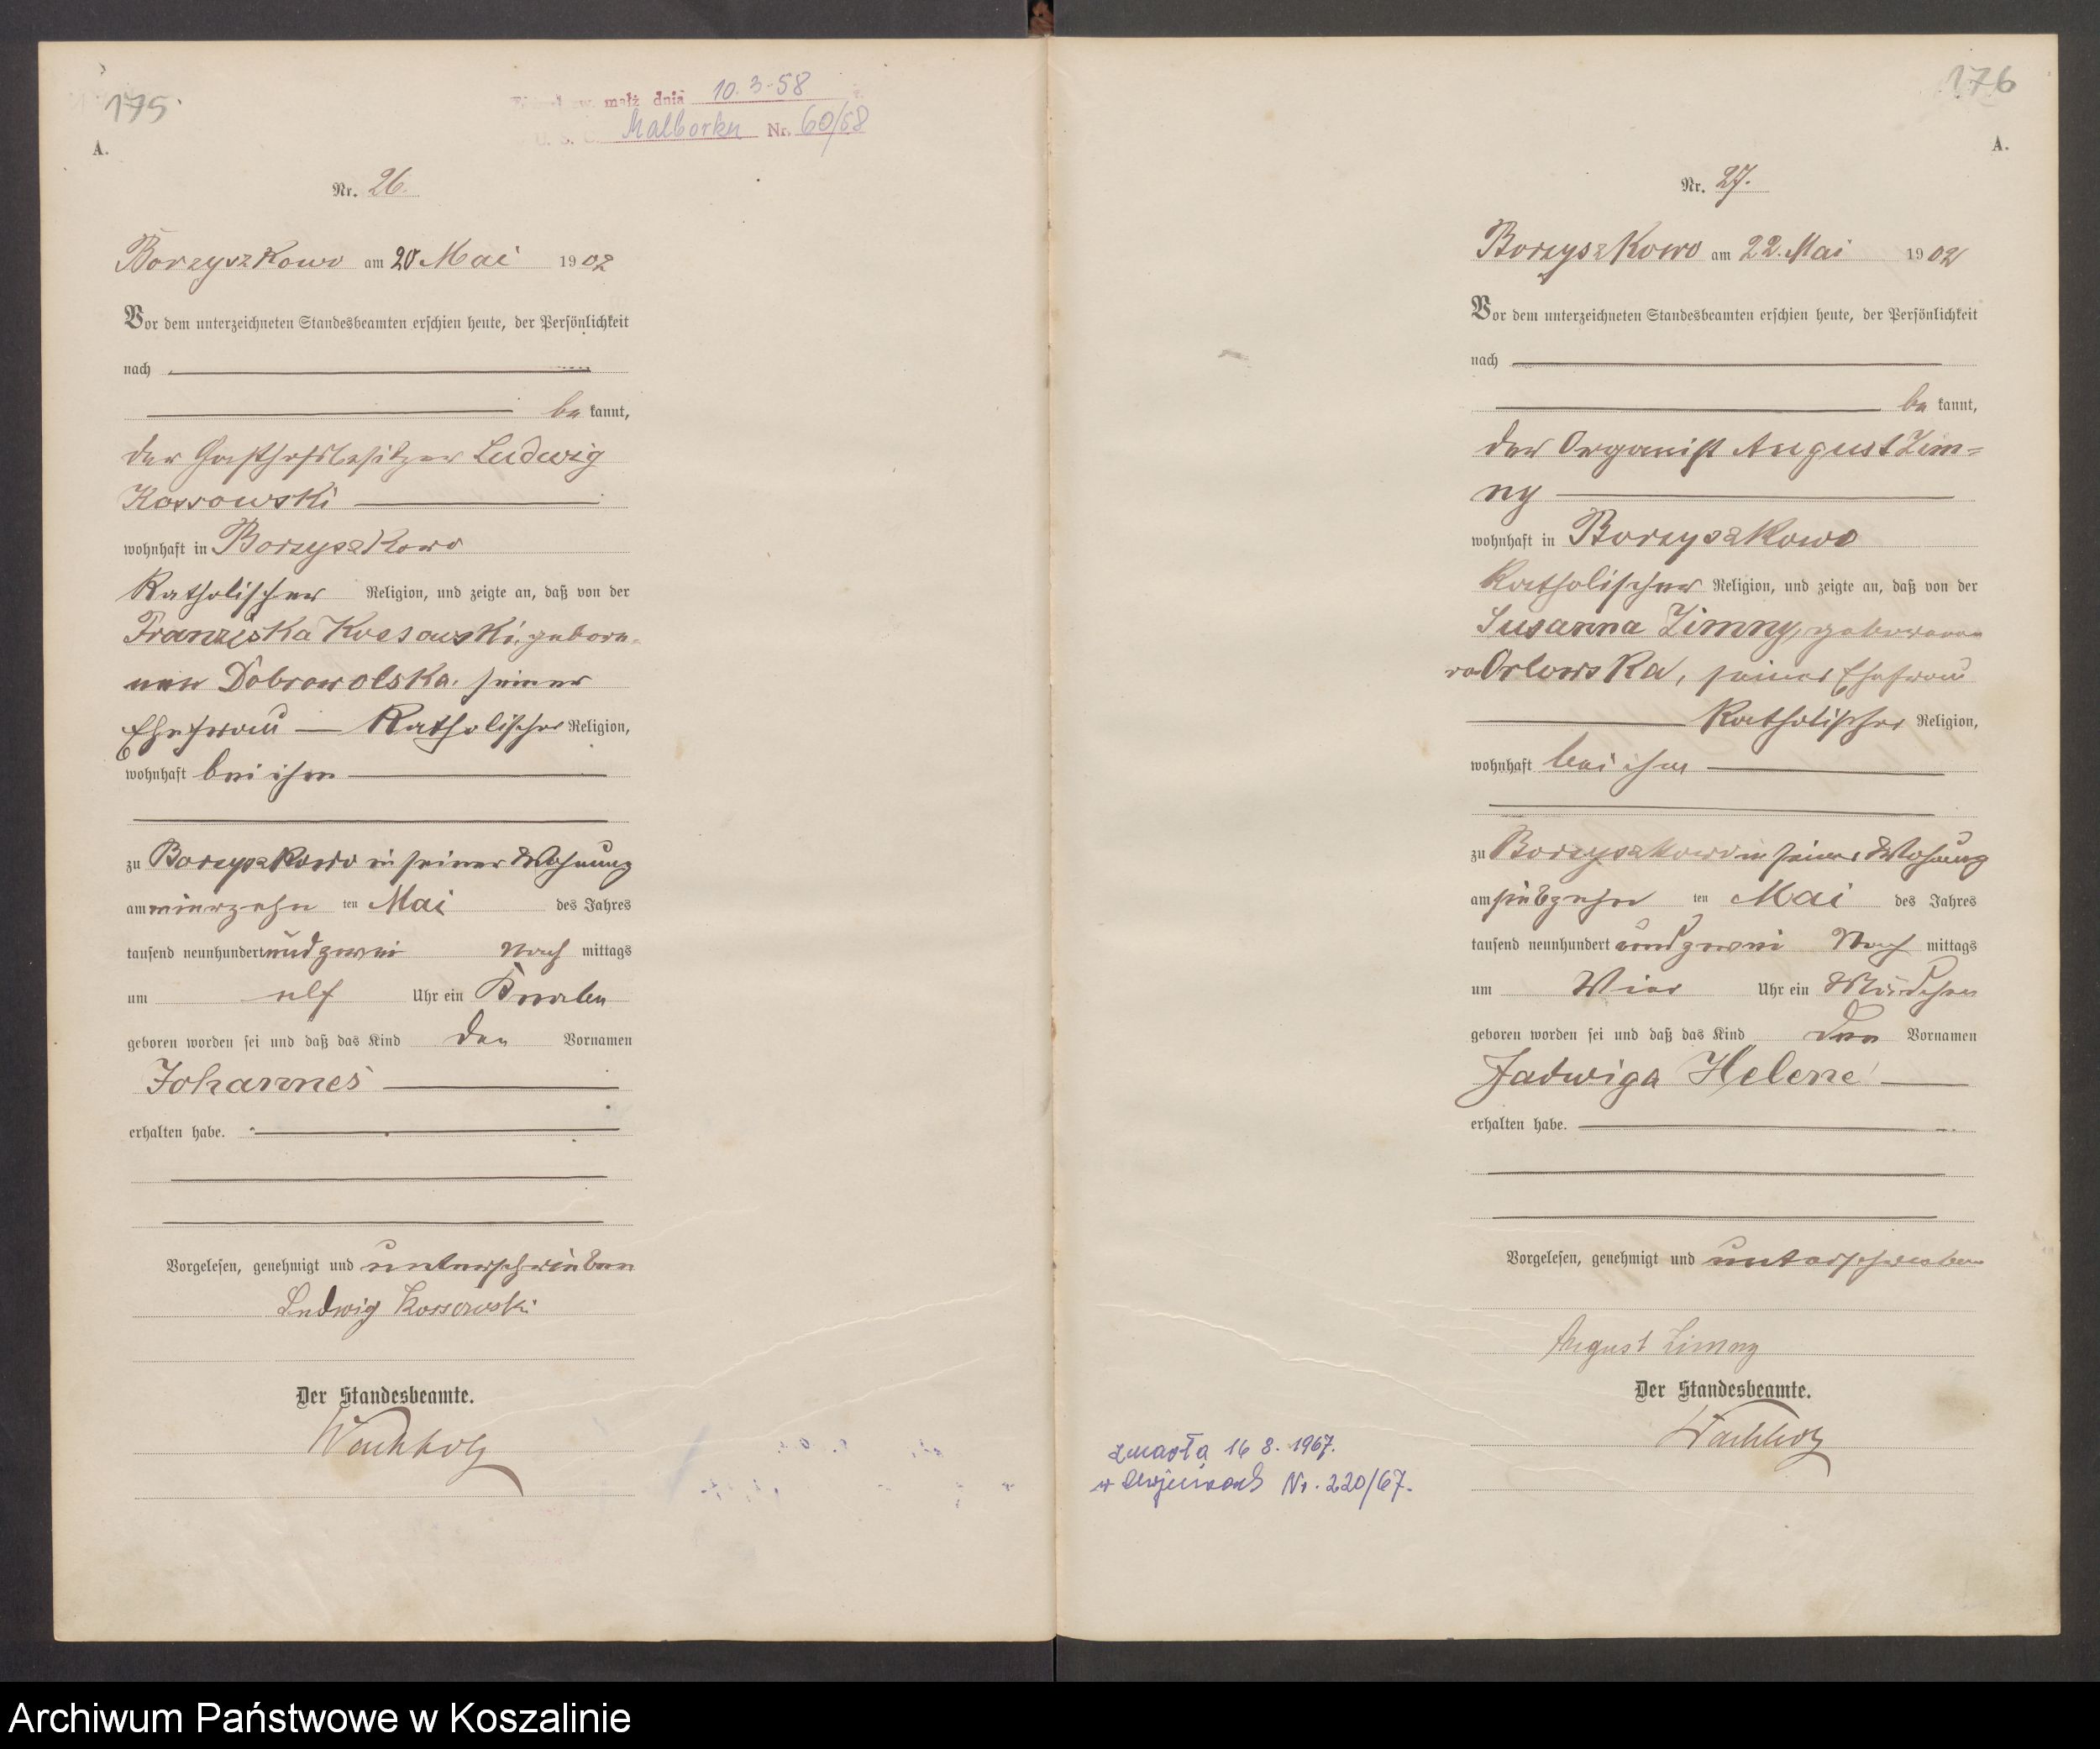 175.
małż dnia 10.3-58
U. S. C. Malborku Nr. 60/58
A.
Nr. 26.
Borzyszkowo am 20 Mai 1902
Vor dem unterzeichneten Standesbeamten erschien heute, der Persönlichkeit
nach
be kannt,
der Gasthofsbesitzer Ludwig
Kossowski
wohnhaft in Borzyszkowo
Katholischer Religion, und zeigte an, daß von der
Franziska Kossowski, gebore-
nen Dobrowolska, seiner
Ehefrau — Katholischer Religion,
wohnhaft bei ihm
zu Borzyszkowo in seiner Wohnung
am vierzehn ten Mai des Jahres
tausend neunhundert und zwei Nach mittags
um elf Uhr ein Knabe
geboren worden sei und daß das Kind den Vornamen
Johannes
erhalten habe.
Vorgelesen, genehmigt und unterschrieben
Ludwig Kossowski
Der Standesbeamte.
Wachholz
176
A.
Nr. 27.
Borzyszkowo am 22. Mai 1902
Vor dem unterzeichneten Standesbeamten erschien heute, der Persönlichkeit
nach
be kannt,
der Organist August Zim=
ny
wohnhaft in Borzyszkowo
Katholischer Religion, und zeigte an, daß von der
Susanna Zimny, geborenen
Orlowska, seiner Ehefrau
Katholischer Religion,
wohnhaft bei ihm
zu Borzyszkowo in seiner Wohnung
am siebzehn ten Mai des Jahres
tausend neunhundert und zwei Nach mittags
um Vier Uhr ein Mädchen
geboren worden sei und daß das Kind den Vornamen
Jadwiga Helene
erhalten habe.
Vorgelesen, genehmigt und unterschrieben
August Zimny
Der Standesbeamte.
Wachholz
zmarła 16 8. 1967.
w Chojnicach Nr. 220/67.
Archiwum Państwowe w Koszalinie